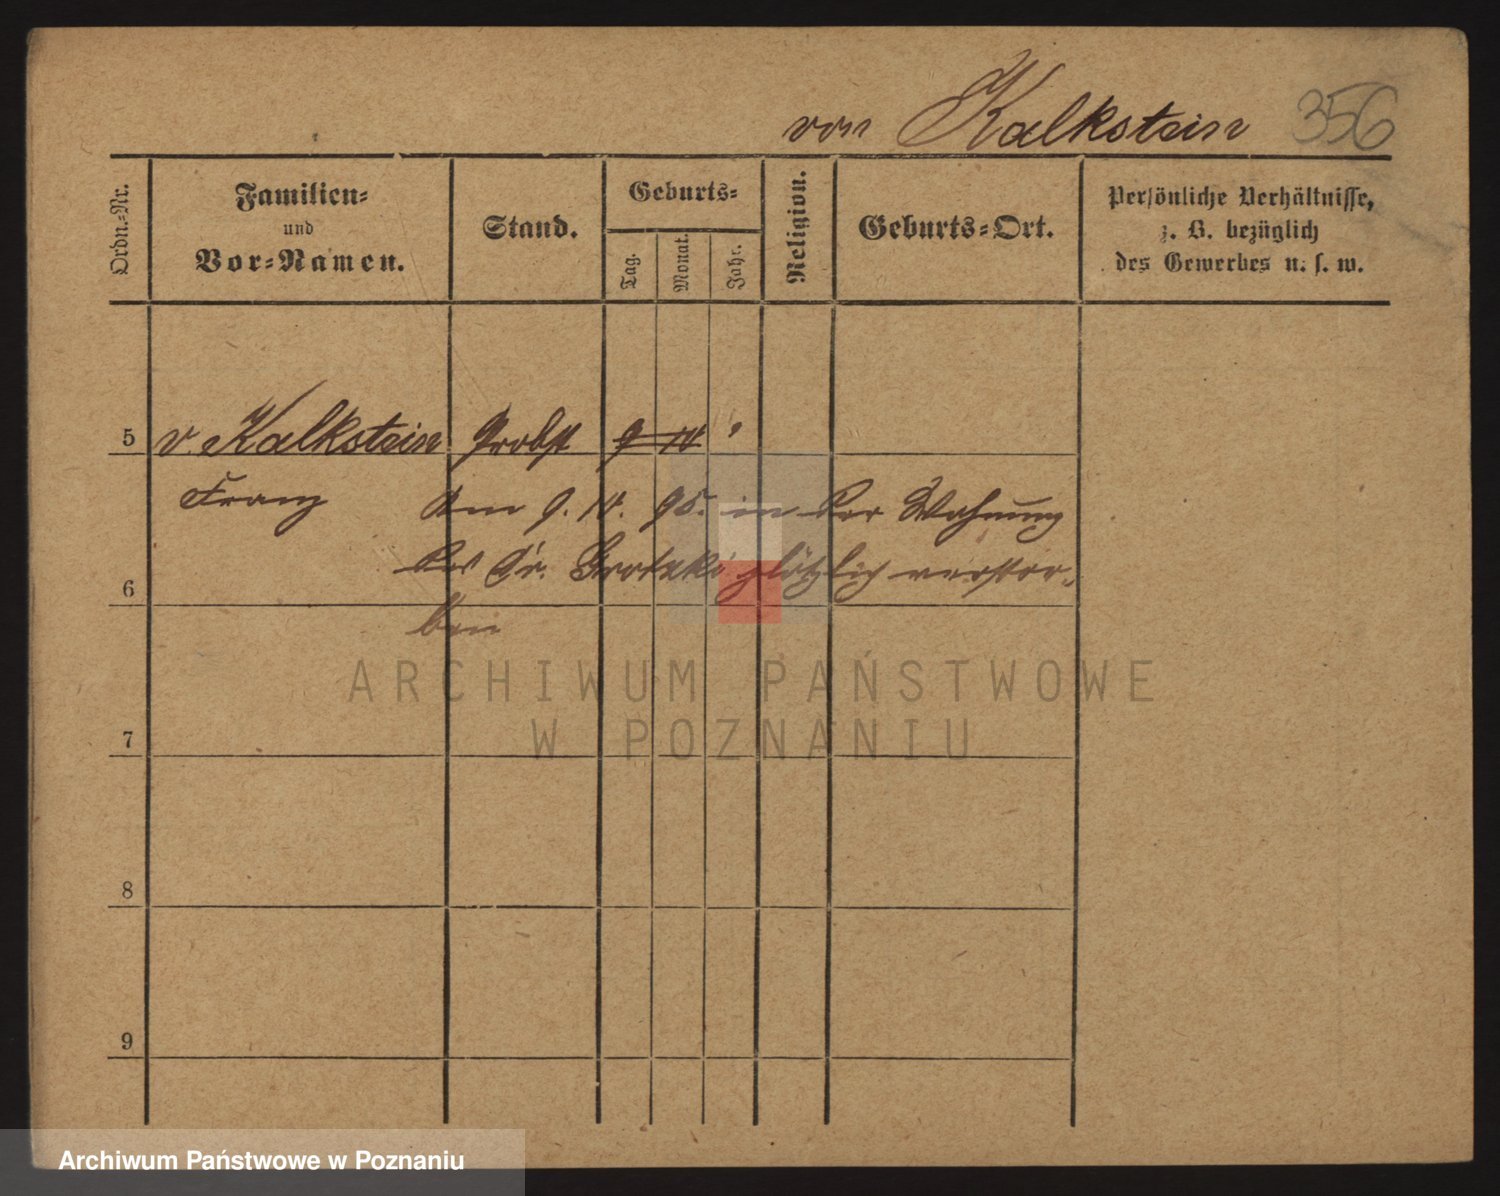 von Kalkstein 356
Ordn.-Nr.
Familien-
und
Vor-Namen.
Stand.
Geburts-
Tag.
Monat.
Jahr.
Religion.
Geburts-Ort.
Persönliche Verhältnisse,
z. B. bezüglich
des Gewerbes u. s. w.
5 v. Kalkstein Probst 9 11
Franz Am 9. 11. 95. in der Wohnung
des Dr. plötzlich verstor-
6
ben
ARCHIWUM PAŃSTWOWE
W POZNANIU
7
8
9
Archiwum Państwowe w Poznaniu